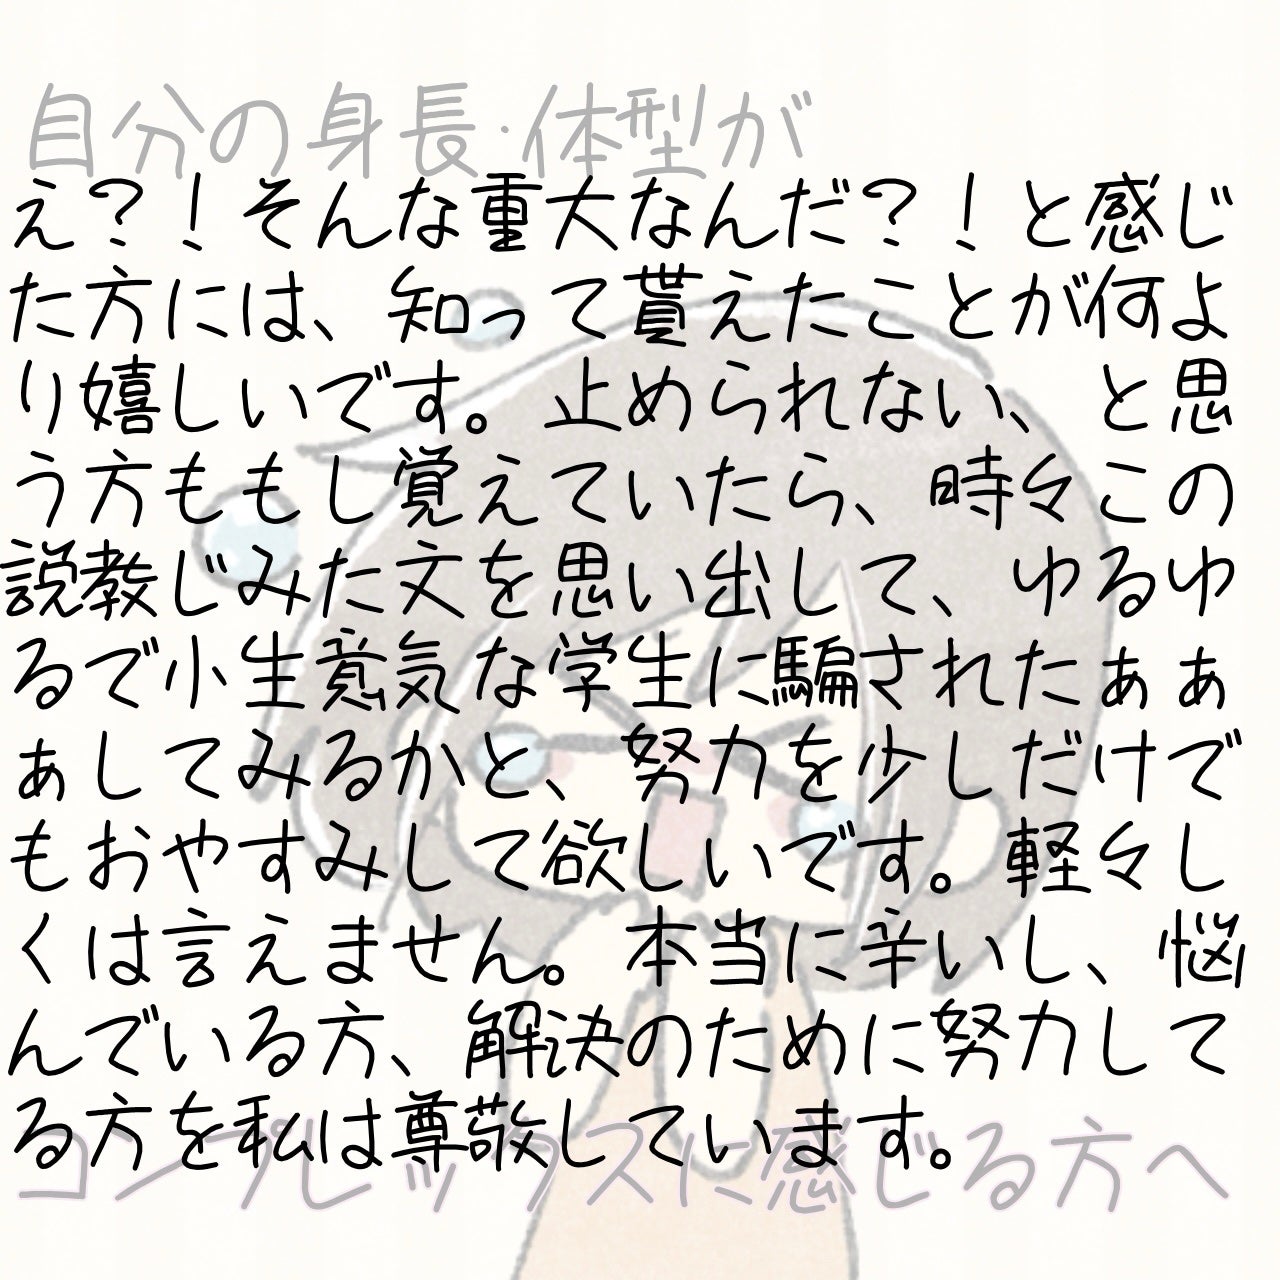 自分の身長·体型が
え？！そんな重大なんだ？！と感じ
た方には、知って貰えたことが何よ
り嬉しいです。止められない、と思
う方ももし覚えていたら、時々この
説教じみた文を思い出して、ゆるゆ
るで小生意気な学生に騙されたぁぁ
ぁしてみるかと、努力を少しだけで
もおやすみして欲しいです。軽々し
くは言えません。本当に辛いし、悩
んでいる方、解決のために努力して
る方を私は尊敬しています。
コンプレックスに感じる方へ